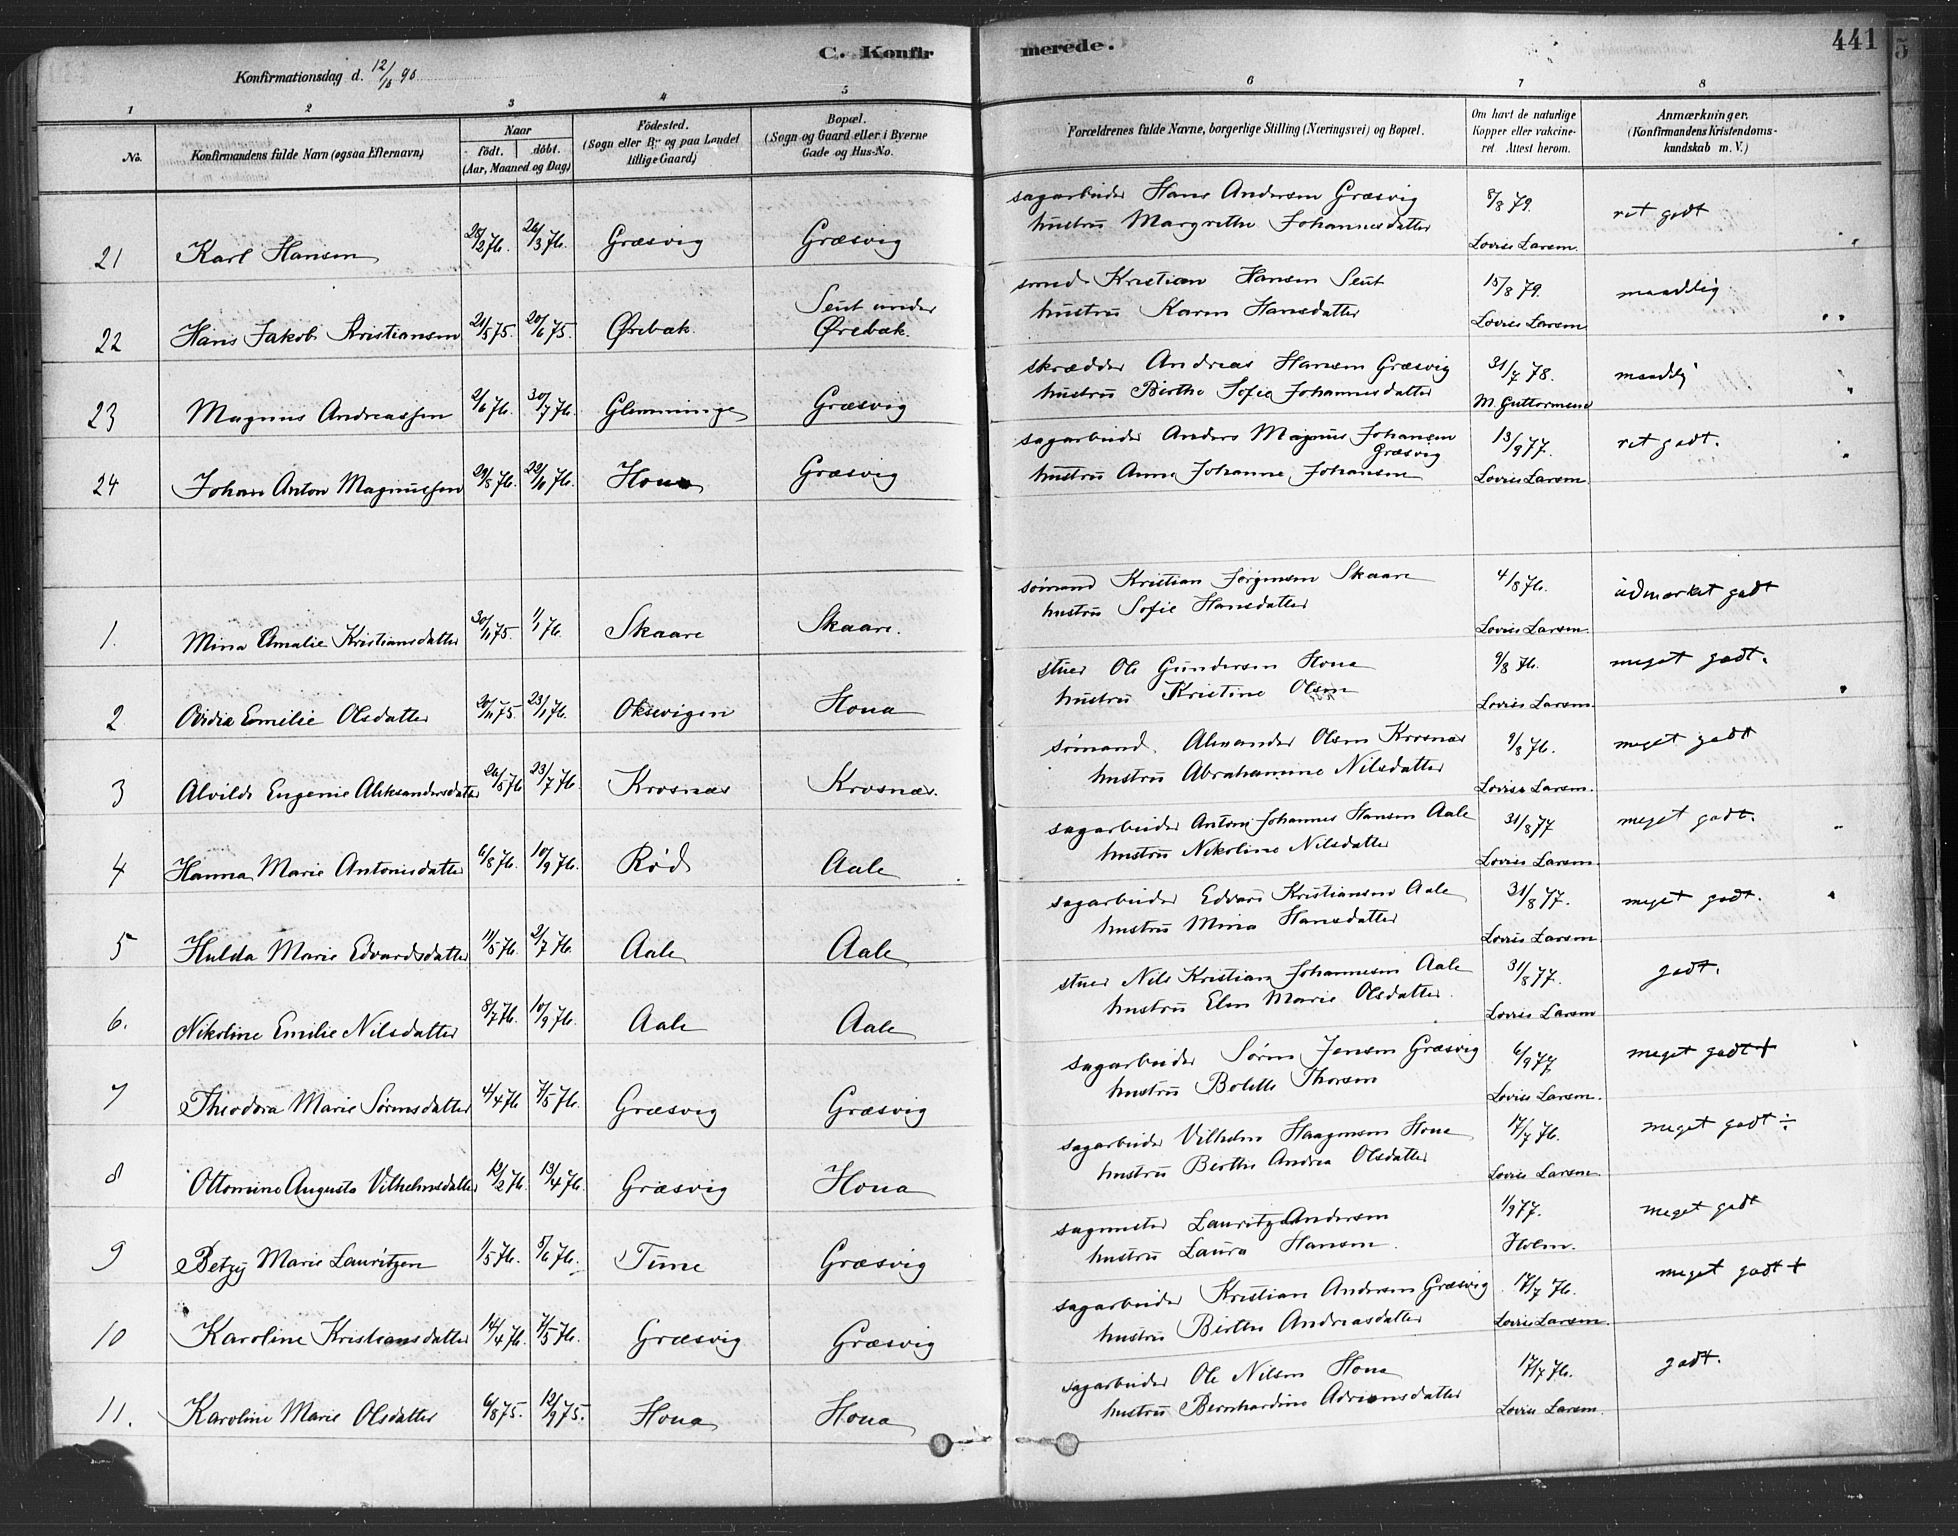 C. Konfirmerede.
441
Konfirmationsdag d. 12/10 90
1 2 3 4 5 6 7 8
No.
Konfirmandens fulde Navn (ogsaa Efternavn)
Naar
født. døbt.
(Aar, Maaned og Dag)
Fødested.
(Sogn eller By og paa Landet
tillige Gaard)
Bopæl.
(Sogn og Gaard eller i Byerne
Gade og Hus-No.
Forældrenes fulde Navne, borgerlige Stilling (Næringsvei) og Bopæl.
Om havt de naturlige
Kopper eller vakcine-
ret. Attest herom.
Anmærkninger.
(Konfirmandens Kristendoms-
kundskab m. V.)
21 Karl Hansen 28/2 76. 26/3 76. Græsvig Græsvig
sagarbeider Hans Andersen Græsvig 8/8 79. ret godt
hustru Margrethe Johannesdatter Lovise Larsen
22 Hans Jakob Kristiansen 21/5 75. 20/6 75. Ørebæk Seut under
Ørebæk.
smed Kristian Hansen Seut 15/8 79. maadelig
hustru Karen Hansdatter Lovise Larsen
23 Magnus Andreassen 2/6 76. 30/7 76. Glemminge Græsvig
skrædder Andreas Hansen Græsvig 31/7 78. maadelig
hustru Birthe Sofie Johannesdatter M. Guttormsen
24 Johan Anton Magnussen 29/8 76. 22/10 76. Houa Græsvig
sagarbeider Anders Magnus Johansen 13/9 77. ret godt.
Græsvig
hustru Anne Johanne Johansen Lovise Larsen
1. Mina Amalie Kristiansdatter 30/11 75. 1/1 76. Skaare Skaare.
sømand Kristian Jørgensen Skaare 4/8 76. udmærket godt
hustru Sofie Hansdatter Lovise Larsen
2 Ovidia Emilie Olsdatter 20/11 75. 23/1 76. Oksevigen Houa
stuer Ole Gundersen Houa 9/8 76. meget godt.
hustru Kristine Olsen Lovise Larsen.
3 Alvilde Eugenie Aleksandersdatter 26/5 76 23/7 76. Krosnæs Krosnæs.
sømand. Alexander Olsen Krosnæs 9/8 76. meget godt
hustru Abrahamine Nilsdatter Lovise Larsen.
4 Hanna Marie Antonsdatter 6/8 76. 10/9 76. Rød Aale
sagarbeider Anton Johannes Hansen Aale 31/8 77 meget godt.
hustru Nikoline Nilsdatter Lovise Larsen.
5 Hulda Marie Edvardsdatter 11/5 76. 2/7 76. Aale Aale
sagarbeider Edvard Kristiansen Aale 31/8 77. meget godt.
hustru Mina Hansdatter Lovise Larsen.
6. Nikoline Emilie Nilsdatter 8/7 76. 10/9 76. Aale Aale
stuer Nils Kristian Johannesen Aale 31/8 77. godt.
hustru Elen Marie Olsdatter. Lovise Larsen
7 Theodora Marie Sørensdatter 4/4 76 7/5 76. Græsvig Græsvig
sagarbeider Søren Jensen Græsvig 6/9 77 meget godt +
hustru Bolette Thorsen Lovise Larsen.
8 Ottomine Augusta Vilhelmsdatter 13/2 76. 13/4 76. Græsvig Houa
sagarbeider Vilhelm Haagensen Houa 17/7 76. meget godt ÷
hustru Birthe Andrea Olsdatter Lovise Larsen
9 Betzy Marie Lauritzen 1/5 76. 5/6 76. Tune Græsvig
sagmester Lauritz Andersen 1/9 77. meget godt
hustru Laura Hansen. Holm.
10 Karoline Kristiansdatter 14/4 76. 7/5 76. Græsvig Græsvig
sagarbeider Kristian Andersen Græsvig 17/7 76. meget godt +
hustru Birthe Andreasdatter Lovise Larsen.
11. Karoline Marie Olsdatter 6/8 75. 12/9 75. Houa Houa
sagarbeider Ole Nilsen Houa 17/7 76. godt.
hustru Bernhardine Adriansdatter Lovise Larsen.